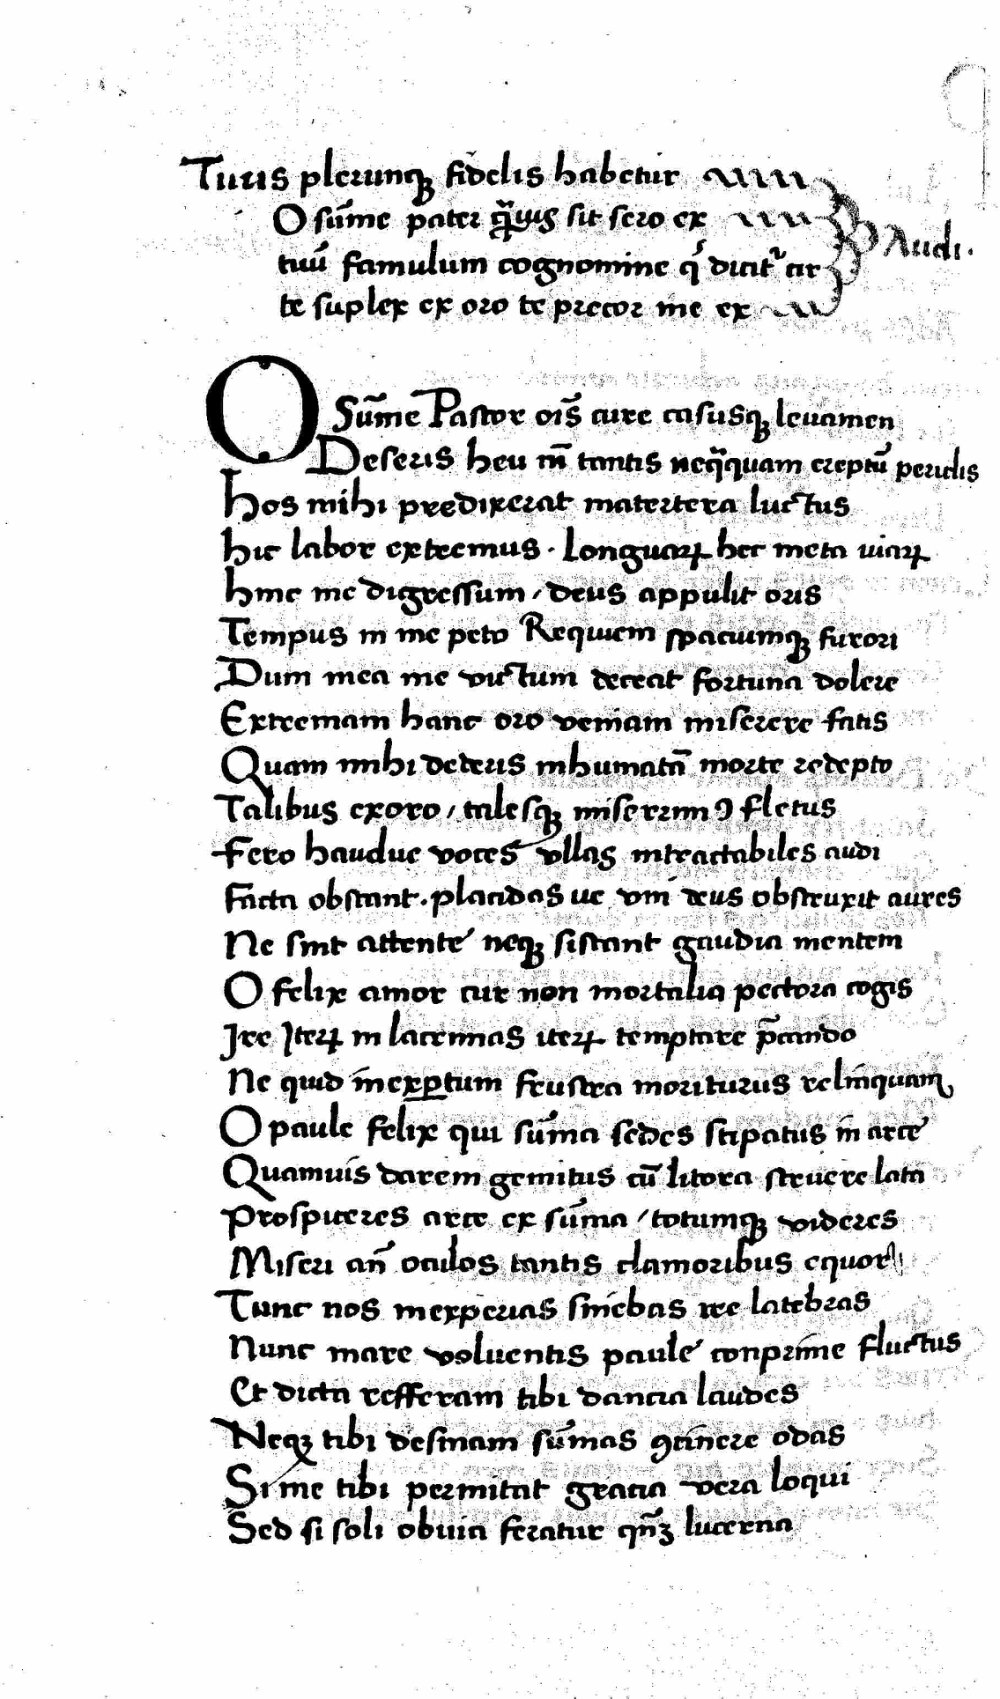 Turis plerunqꝫ fidelis habetur
O sūme pater q̄uis sit sero ex
tuū famulum cognomine q' dicitᷣ
te suplex ex oro te precor me ex
Audi.
O Sūme Pastor oīs cure casusqꝫ leuamen
Deseris heu m̄ tantis neq̄quam ereptū periclis
Hos mihi predixerat matertera luctus
hic labor extremus. Longuaꝝ hec meta uiaꝝ
hinc me digressum / deus appulit oris
Tempus in me peto Requiem spaciumqꝫ furori
Dum mea me victum deceat fortuna dolere
Extremam hanc oro veniam miserere fatis
Quam mihi dederis inhumatā morte redepto
Talibus exoro / talesqꝫ miserrimꝰ fletus
Fero haudue voces vllas intractabiles audi
Facta obstant. placidas ue vni deus obstruxit aures
Ne sint attente neqꝫ sistant gaudia mentem
O felix amor cur non mortalia pectora cogis
Ire Iteꝝ in lacrimas iteꝝ temptare p̄cando
Ne quid inexꝑtum frustra moriturus relinquam
O paule felix qui sūma sedes stipatus in arce
Quamuis darem gemitus cū litora struere lata
Prospiceres arce ex sūma / totumqꝫ videres
Miseri an̄ oculos tantis clamoribus equor
Tunc nos inexpertas sinebas ire latebras
Nunc mare voluentis paule conprime fluctus
Et dicta refferam tibi dancia laudes
Neqꝫ tibi desinam sūmas ꝯtinere odas
Si me tibi permitat gracia vera loqui
Sed si soli obuia feratur qn̄ꝫ lucerna